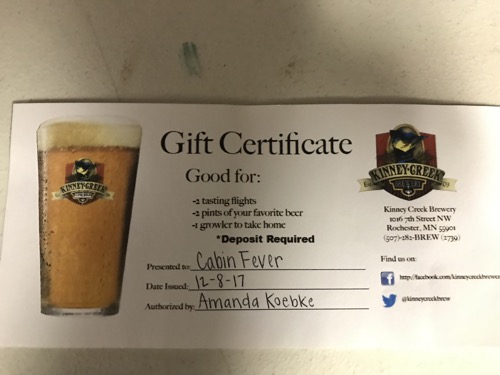 Gift Certificate
Good for:
-2 tasting flights
-2 pints of your favorite beer
-1 growler to take home
*Deposit Required
Presented to: Cabin Fever
Date Issued: 12-8-17
Authorized by: Amanda Koebke
KINNEY CREEK
BREWERY
KINNEY CREEK
BREWERY
Kinney Creek Brewery
1016 7th Street NW
Rochester, MN 55901
(507)-282-BREW (2739)
Find us on:
http://facebook.com/kinneycreekbrewer
@kinneycreekbrew